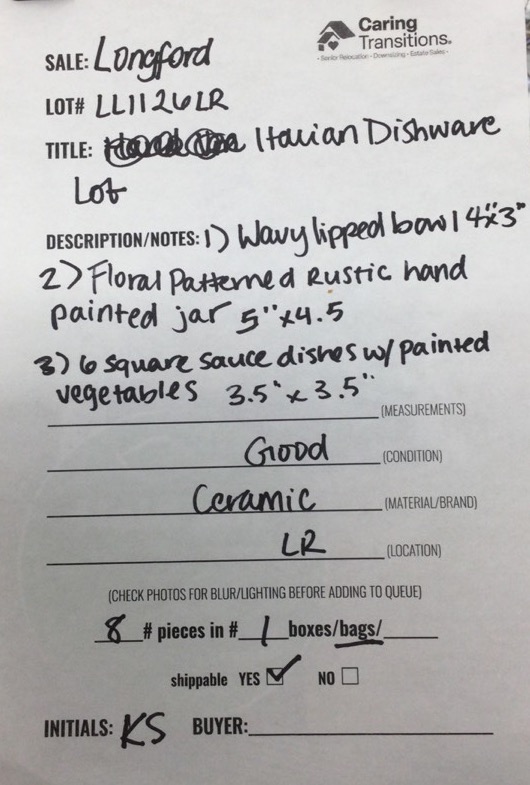 Caring
Transitions.
- Senior Relocation - Downsizing - Estate Sales -
SALE: Longford
LOT# LL1126LR
TITLE: Italian Dishware
Lot
DESCRIPTION/NOTES: 1) Wavy lipped bowl 4"x3"
2) Floral Patterned Rustic hand
painted jar 5"x4.5
3) 6 square sauce dishes w/painted
vegetables 3.5" x 3.5"
(MEASUREMENTS)
Good (CONDITION)
Ceramic (MATERIAL/BRAND)
LR (LOCATION)
(CHECK PHOTOS FOR BLUR/LIGHTING BEFORE ADDING TO QUEUE)
8 # pieces in # 1 boxes/bags/
shippable YES ☑ NO ☐
INITIALS: KS BUYER: